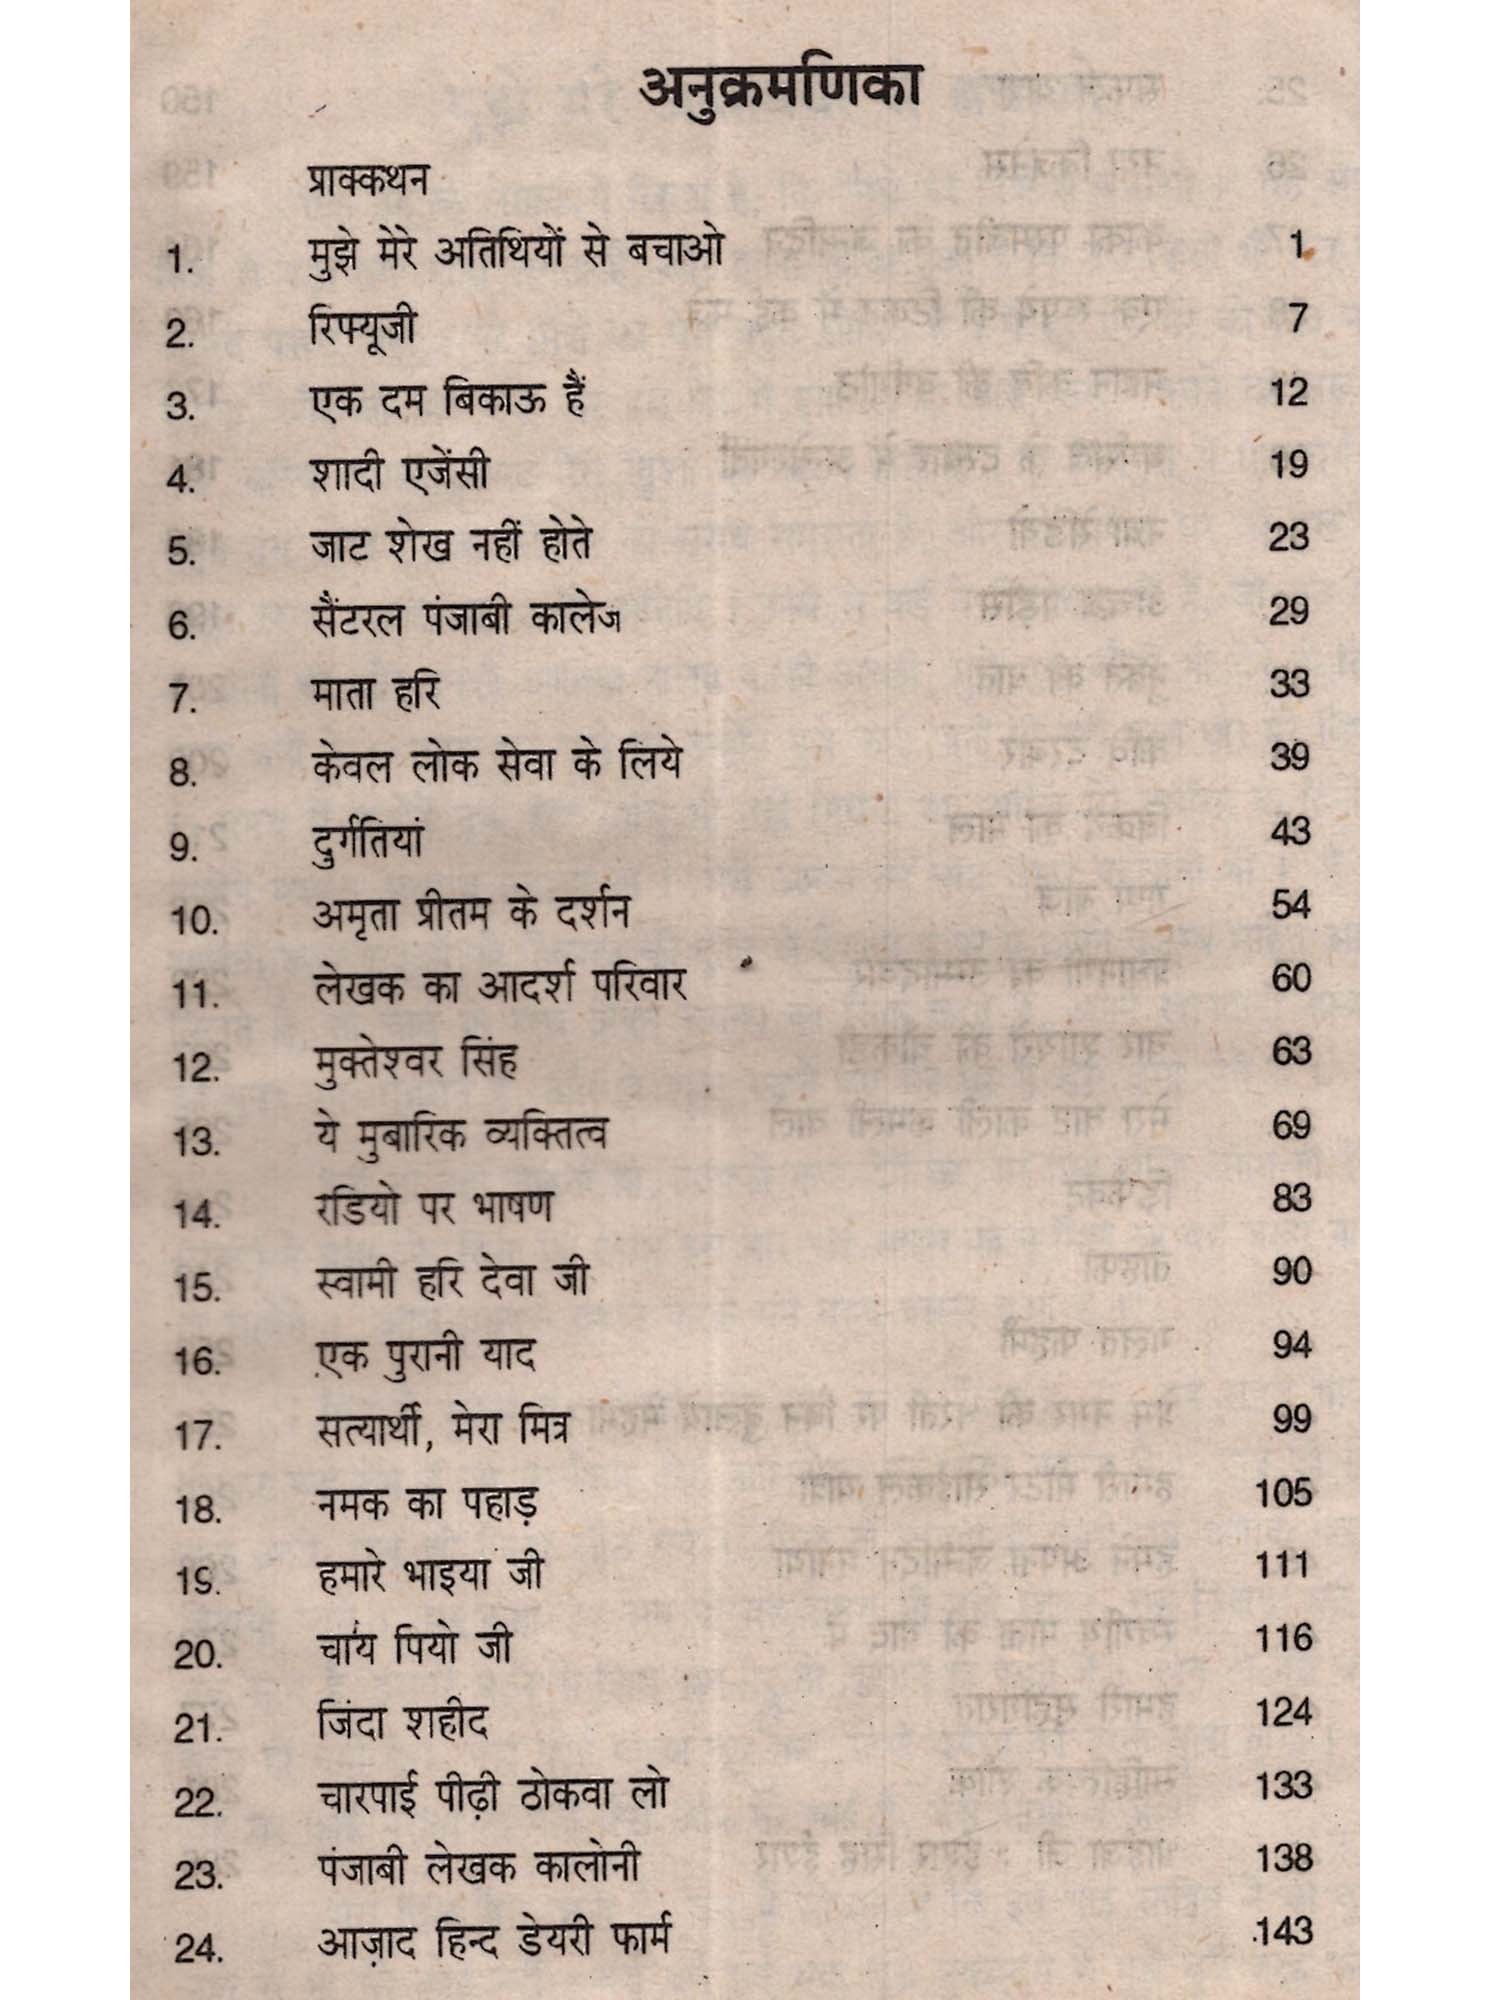 अनुक्रमणिका
प्राक्कथन
1. मुझे मेरे अतिथियों से बचाओ 1
2. रिफ्यूजी 7
3. एक दम बिकाऊ हैं 12
4. शादी एजेंसी 19
5. जाट शेख नहीं होते 23
6. सैंटरल पंजाबी कालेज 29
7. माता हरि 33
8. केवल लोक सेवा के लिये 39
9. दुर्गतियां 43
10. अमृता प्रीतम के दर्शन 54
11. लेखक का आदर्श परिवार 60
12. मुक्तेश्वर सिंह 63
13. ये मुबारिक व्यक्तित्व 69
14. रडियो पर भाषण 83
15. स्वामी हरि देवा जी 90
16. एक पुरानी याद 94
17. सत्यार्थी, मेरा मित्र 99
18. नमक का पहाड़ 105
19. हमारे भाइया जी 111
20. चाय पियो जी 116
21. जिंदा शहीद 124
22. चारपाई पीढ़ी ठोकवा लो 133
23. पंजाबी लेखक कालोनी 138
24. आज़ाद हिन्द डेयरी फार्म 143